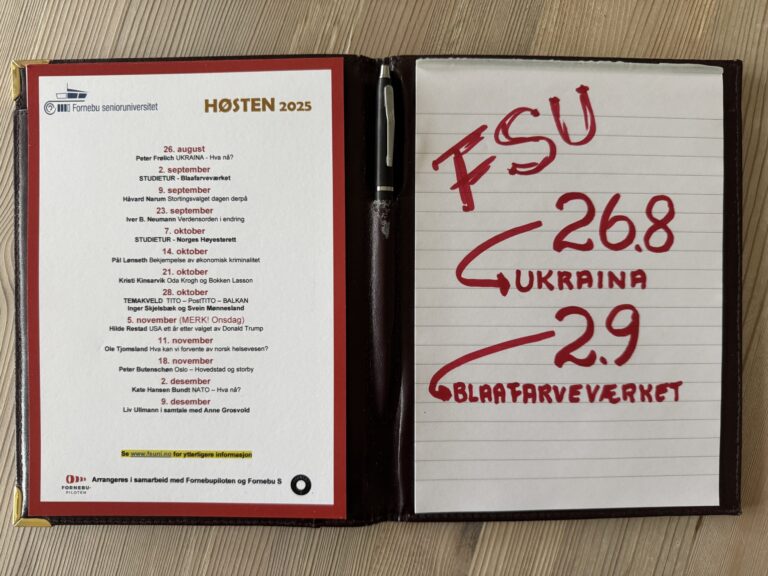 Fornebu senioruniversitet
HØSTEN 2025
26. august
Peter Frølich UKRAINA - Hva nå?
2. september
STUDIETUR - Blaafarveværket
9. september
Håvard Narum Stortingsvalget dagen derpå
23. september
Iver B. Neumann Verdensorden i endring
7. oktober
STUDIETUR - Norges Høyesterett
14. oktober
Pål Lønseth Bekjempelse av økonomisk kriminalitet
21. oktober
Kristi Kinsarvik Oda Krogh og Bokken Lasson
28. oktober
TEMAKVELD TITO – PostTITO – BALKAN
Inger Skjelsbæk og Svein Mønnesland
5. november (MERK! Onsdag)
Hilde Restad USA ett år etter valget av Donald Trump
11. november
Ole Tjomsland Hva kan vi forvente av norsk helsevesen?
18. november
Peter Butenschøn Oslo – Hovedstad og storby
2. desember
Kate Hansen Bundt NATO – Hva nå?
9. desember
Liv Ullmann i samtale med Anne Grosvold
Se www.fsuni.no for ytterligere informasjon
FORNEBU-
PILOTEN
Arrangeres i samarbeid med Fornebupiloten og Fornebu S
FSU
26.8
UKRAINA
2.9
BLAAFARVEVÆRKET